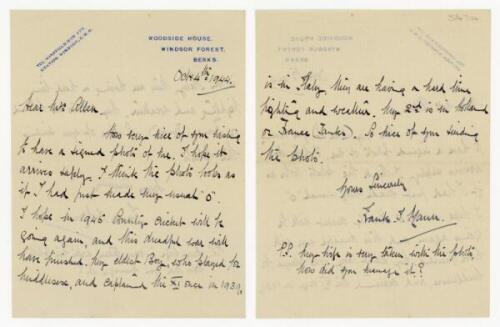 WOODSIDE HOUSE,
WINDSOR FOREST,
BERKS.
Oct 4th 1944.
Dear Mr Allen
Was very nice of you wishing
to have a signed photo of me. I hope it
arrives safely. I think the photo looks as
if I had just made my usual "0".
I hope in 1945 County cricket will be
going again, and this dreadful war will
have finished. My eldest Boy, who played for
Middlesex, and captained the XI once in 1939,
is in Italy they are having a hard time
fighting and weather. My 2nd is in Holland
or France (Tanks). So nice of you sending
the photo.
Yours Sincerely
Frank T. Mann.
P.S. My wife is very taken with the photo,
how did you manage it?